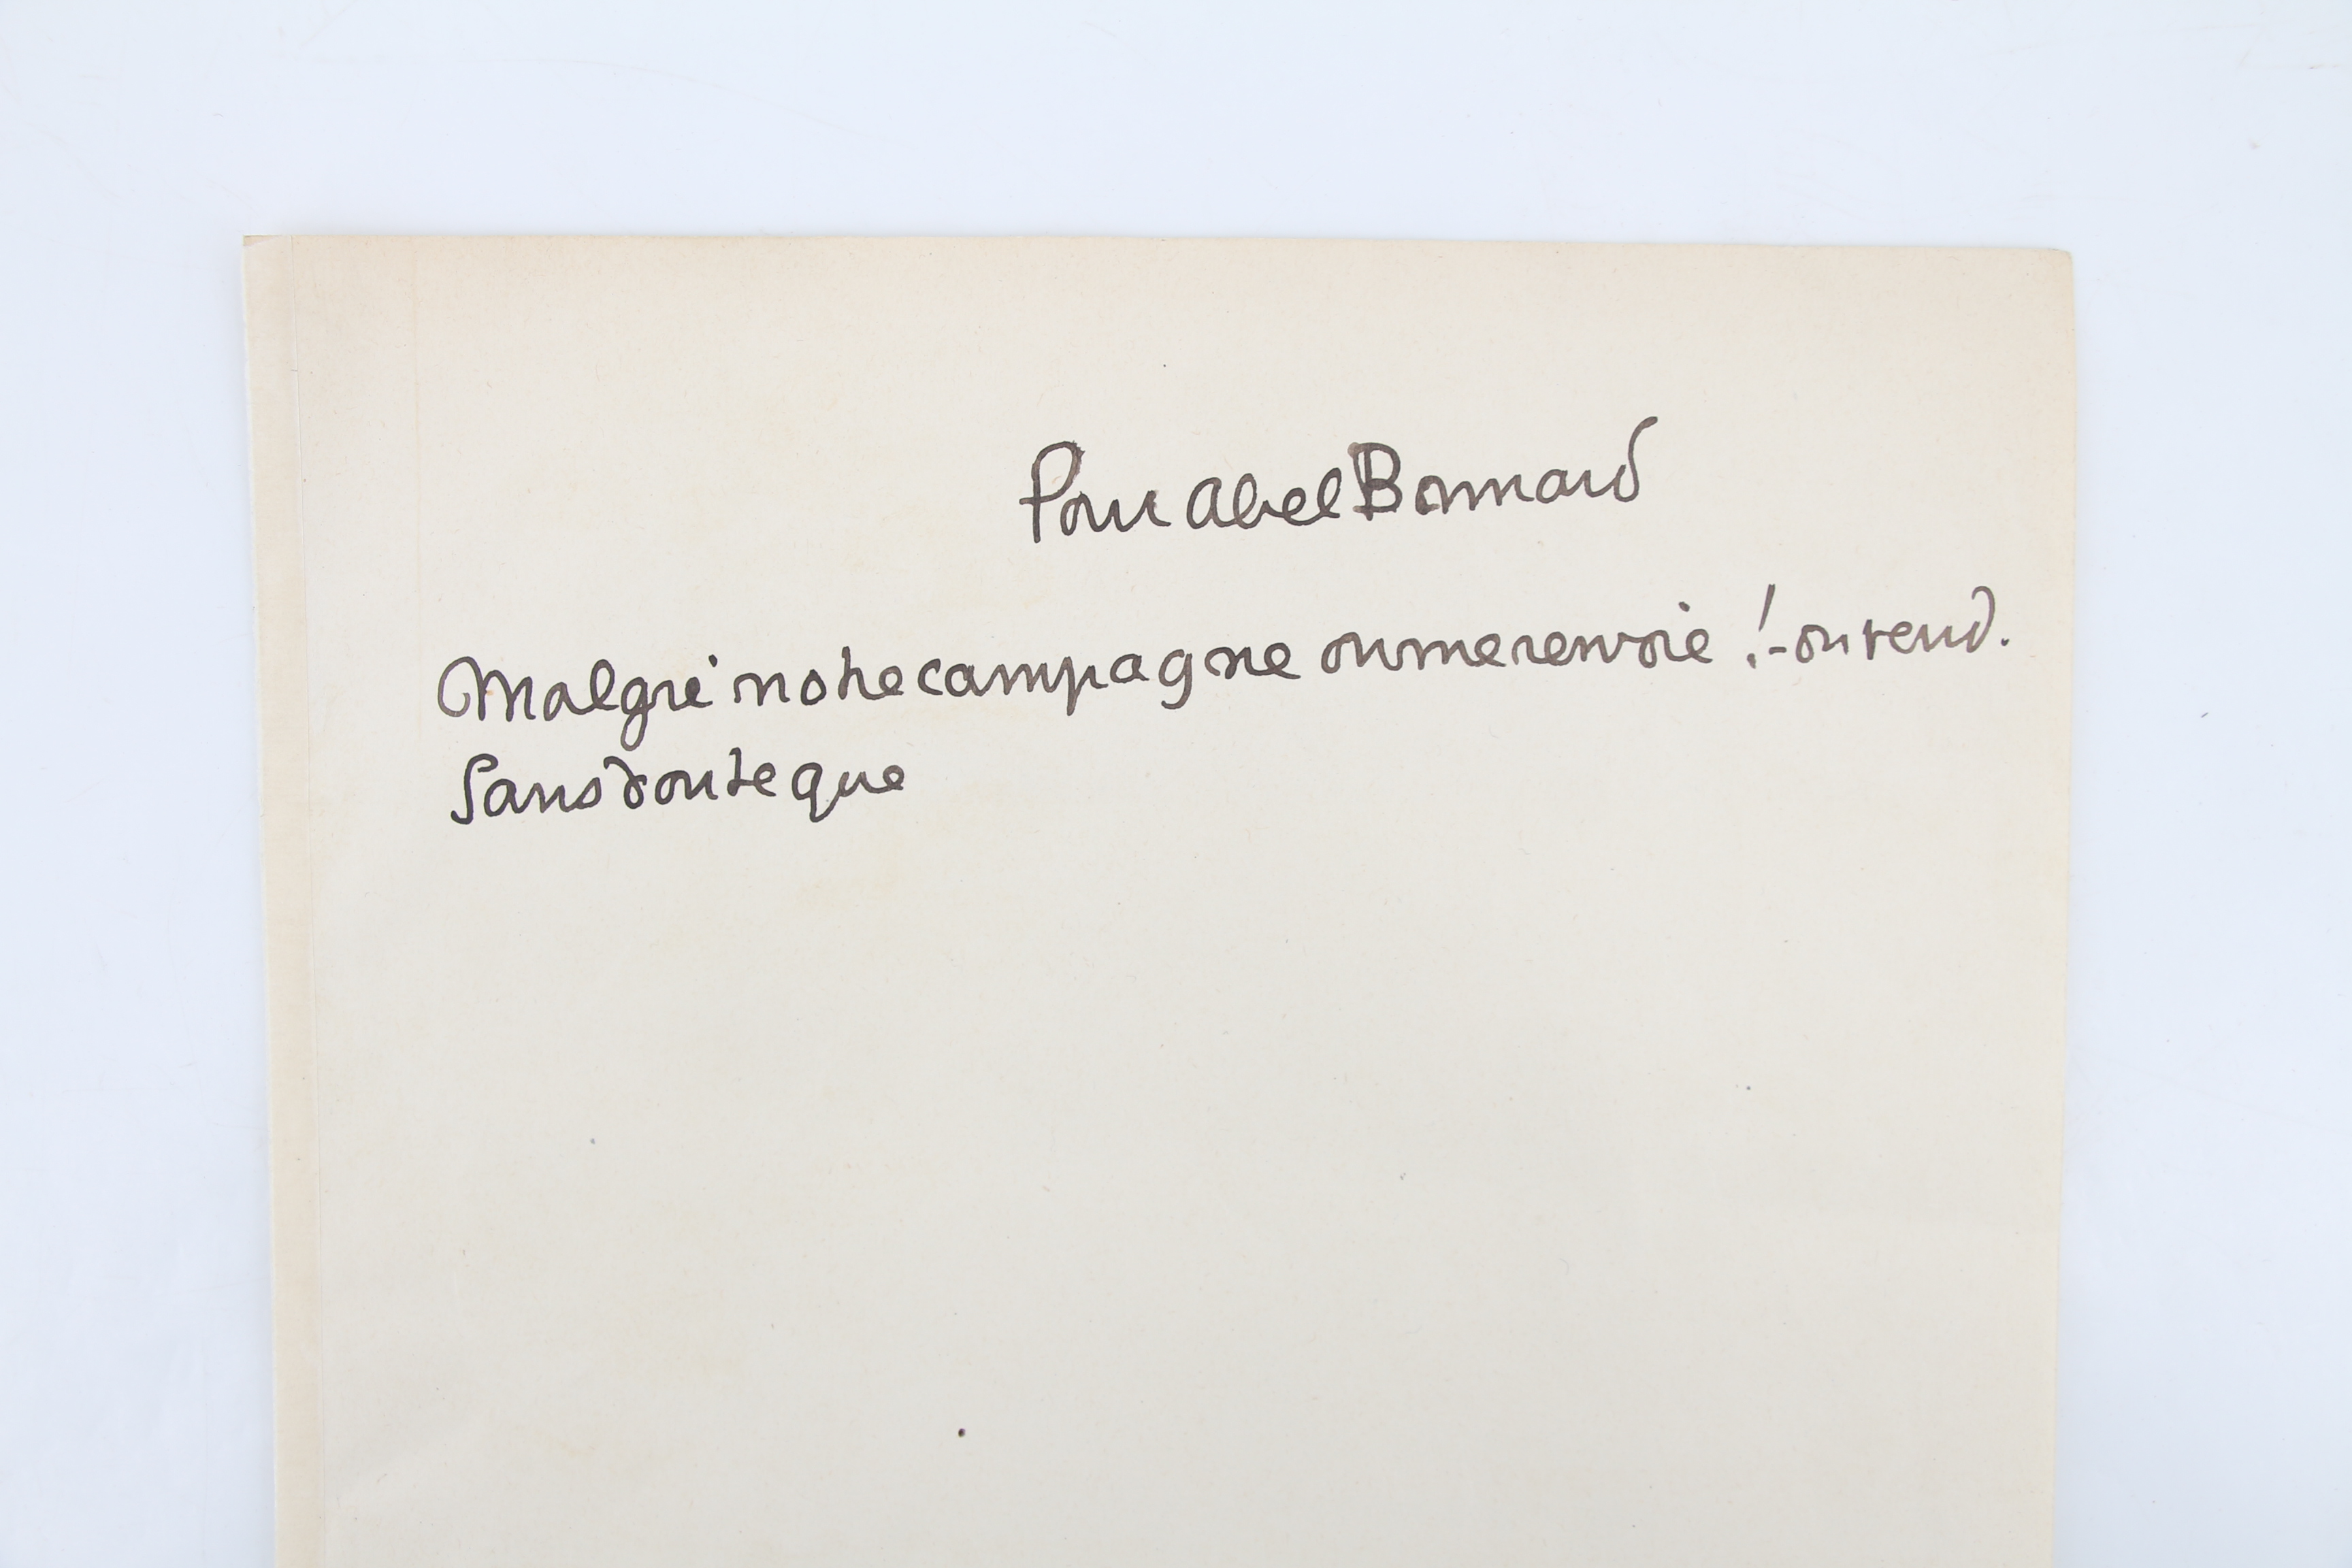 Pour Abel Bonnard
Malgré notre campagne on me renvoie ! - on rend.
Sans doute que